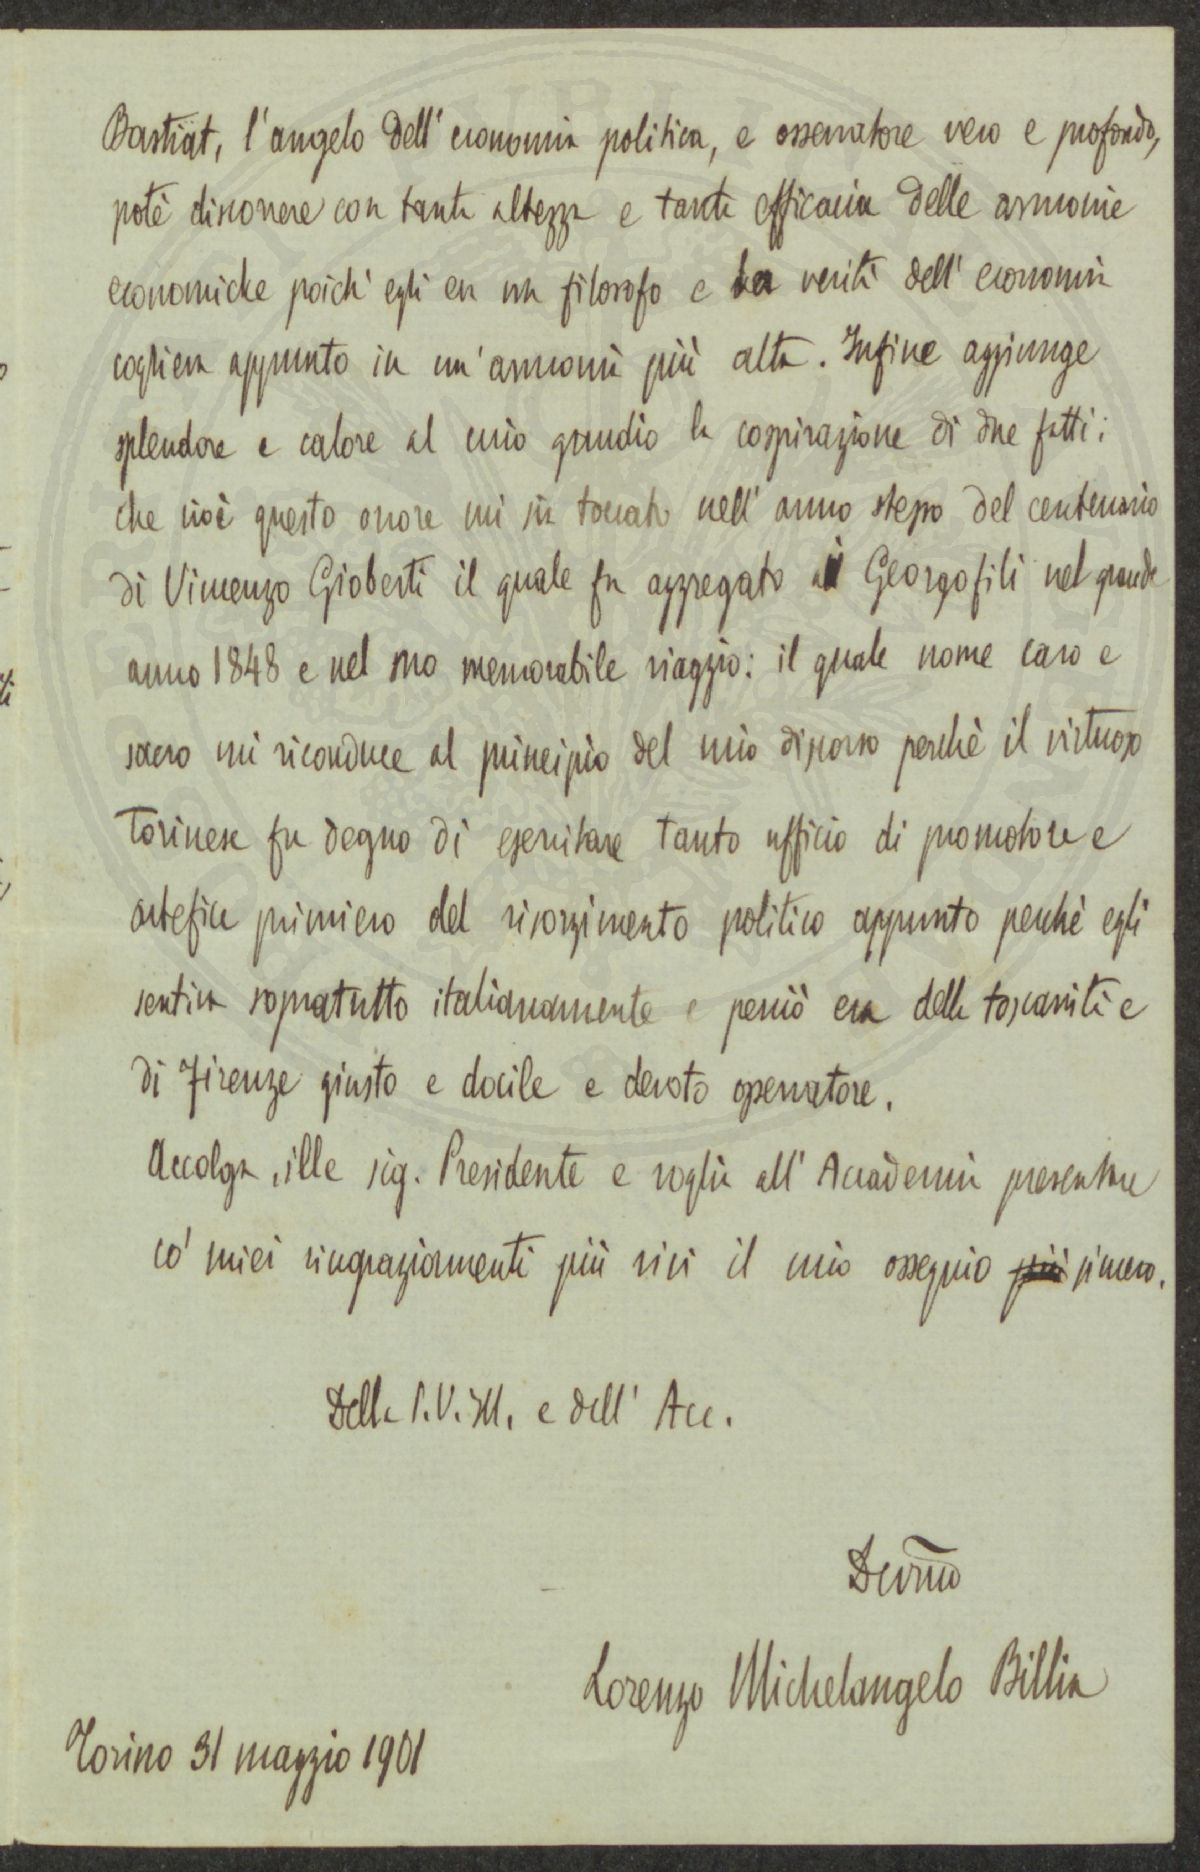 Bastiat, l'angelo dell'economia politica, e osservatore vero e profondo,
potè discorrere con tanta altezza e tanta efficacia delle armonie
economiche poichè egli era un filosofo e la verità dell'economia
coglieva appunto in un'armonia più alta. Infine aggiunge
splendore e calore al mio gaudio la cospirazione di due fatti:
che cioè questo onore mi sia toccato nell'anno stesso del centenario
di Vincenzo Gioberti il quale fu aggregato ai Georgofili nel grande
anno 1848 e nel suo memorabile viaggio: il quale nome caro e
sacro mi riconduce al principio del mio discorso perchè il virtuoso
Torinese fu degno di esercitare tanto ufficio di promotore e
artefice primiero del risorgimento politico appunto perchè egli
sentiva sopratutto italianamente e perciò era della toscanità e
di Firenze giusto e docile e devoto osservatore.
Accolga, ille sig. Presidente e voglia all'Accademia presentare
co' miei ringraziamenti più vivi il mio ossequio più sincero.
Della S.V.Ill. e dell'Acc.
Devmo
Lorenzo Michelangelo Billia
Torino 31 maggio 1901